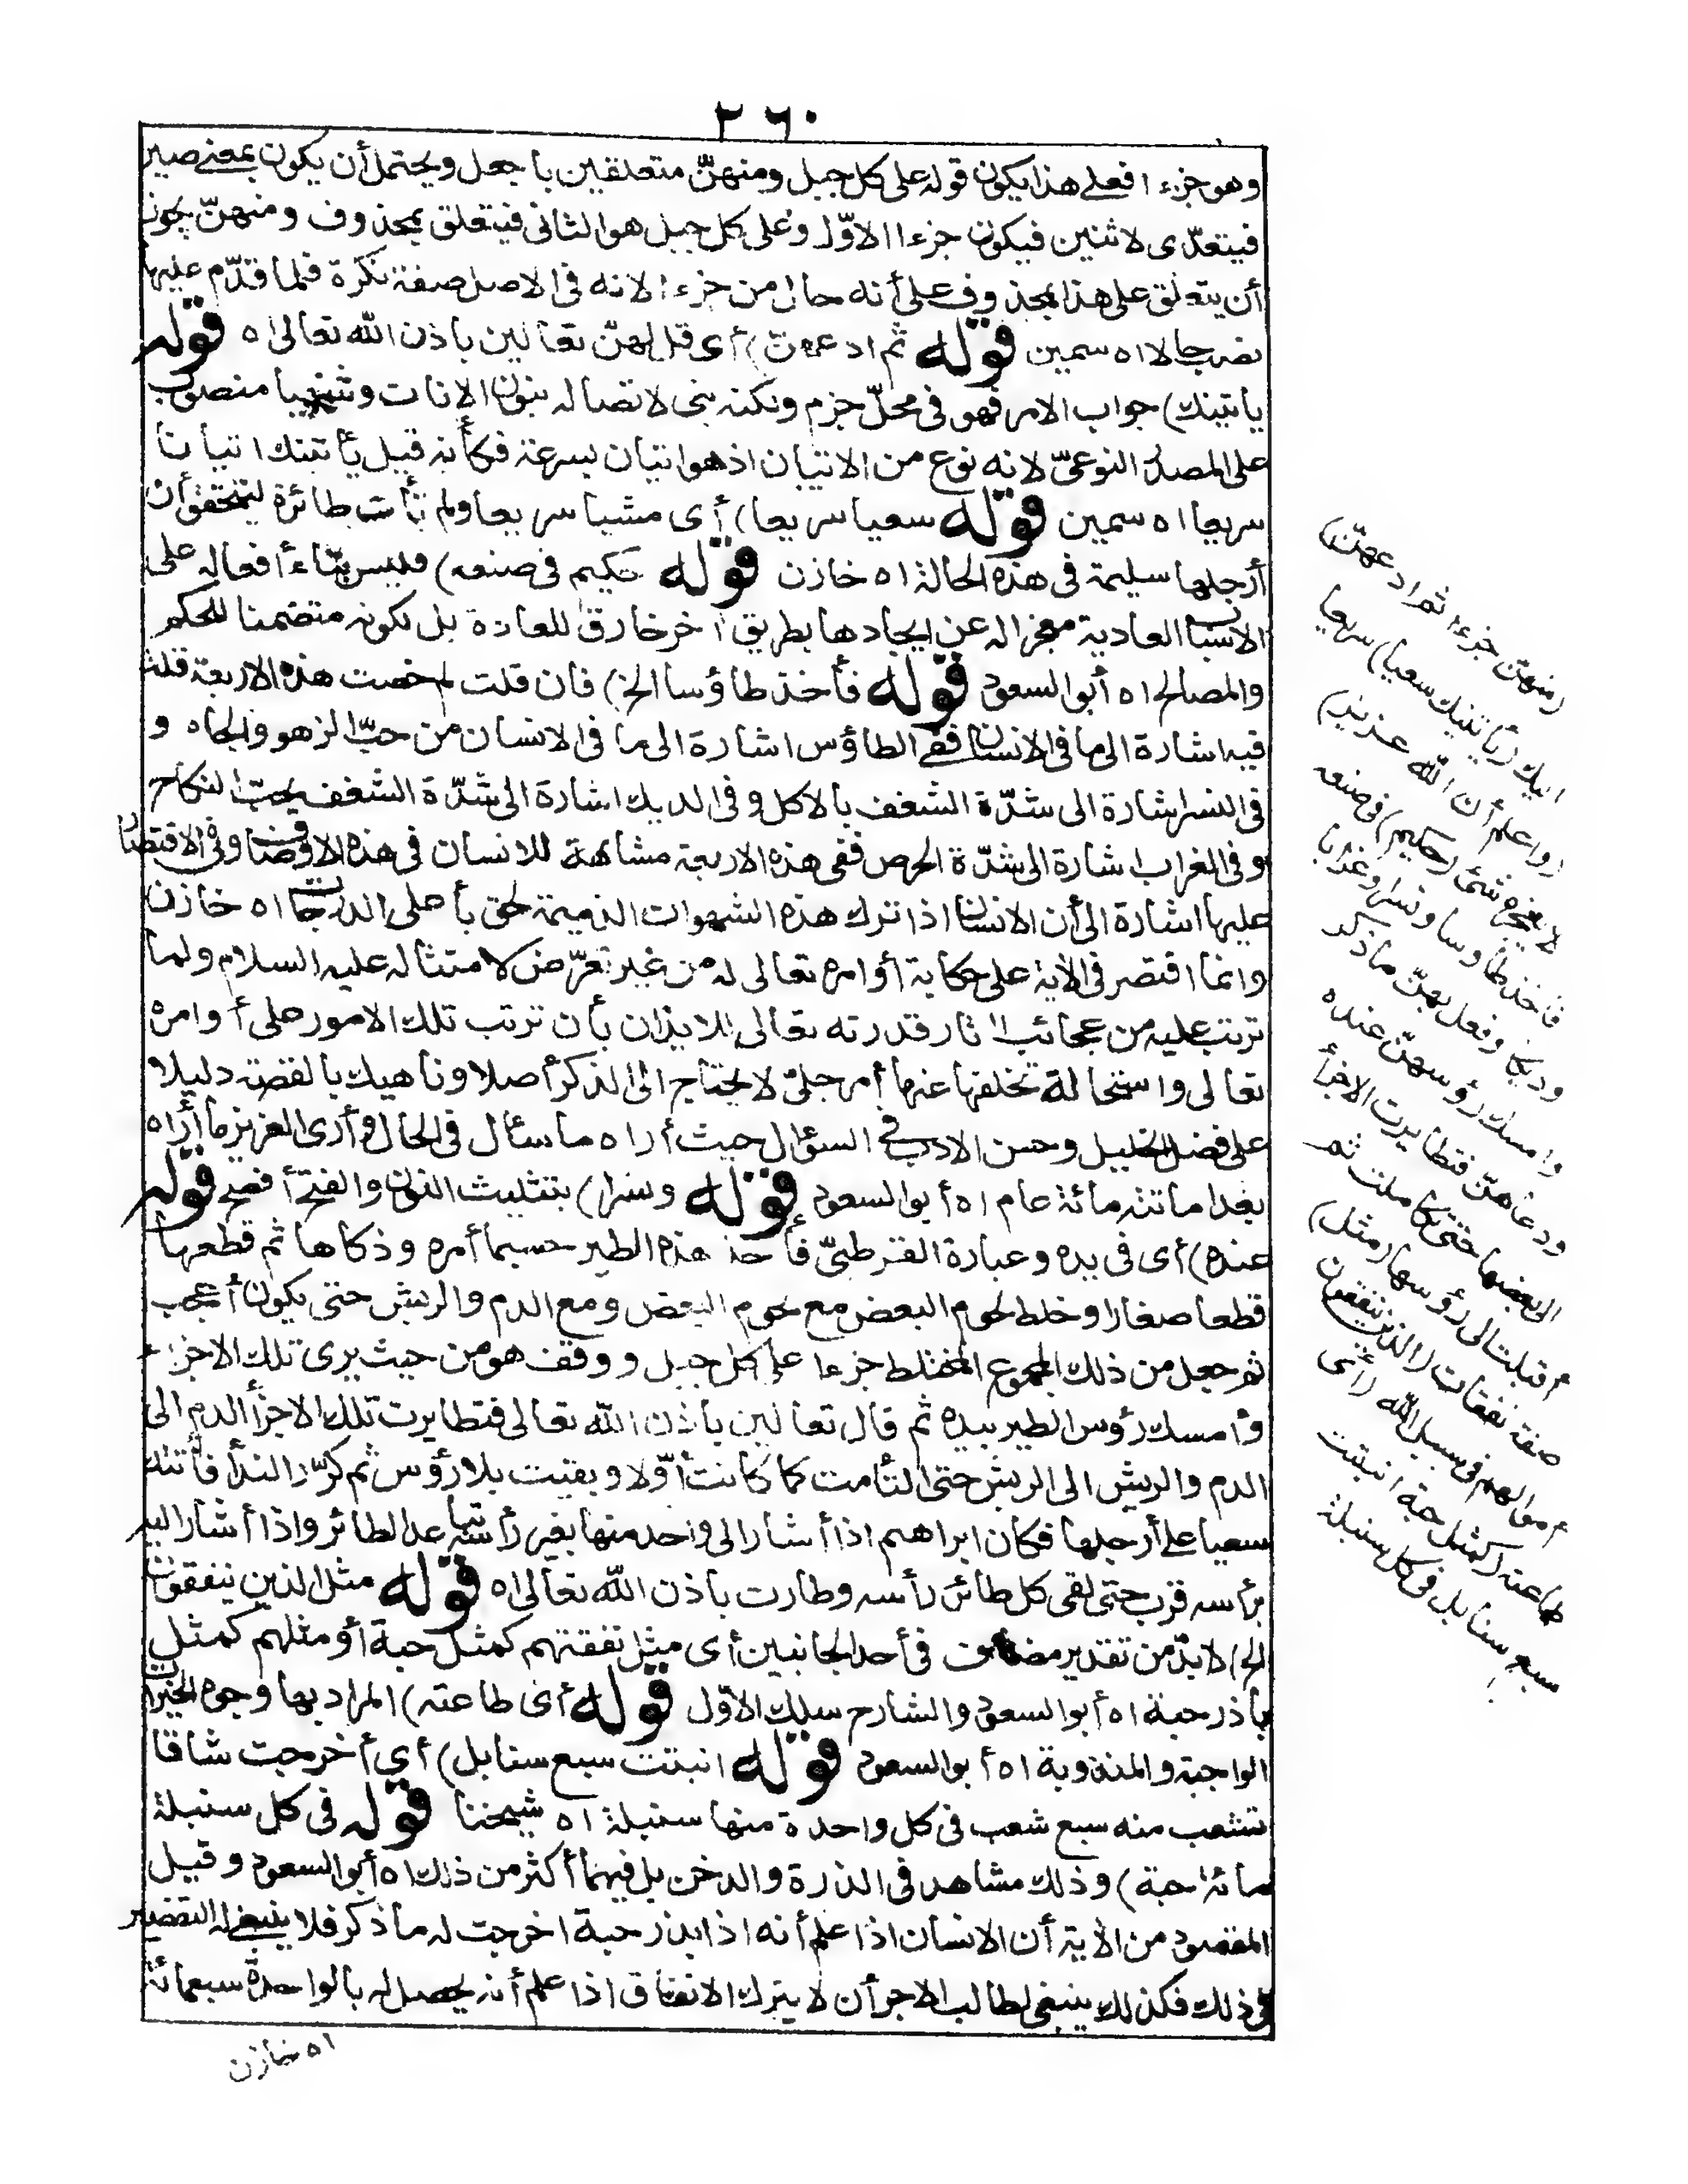 ٢٦٠
وهو جزء افعلى هذا يكون قوله على كل جبل ومنهنّ متعلقين باجعل ويحتمل أن يكون بمعنى صير
فيتعدّى لاثنين فيكون جزءا الاوّل وعلى كل جبل هو الثانى فيتعلق بمحذوف ومنهنّ يجوز
أن يتعلق على هذا بمحذوف على أنه حال من جزء الانه فى الاصل صفة نكرة فلما قدّم عليها
نصب حالا اه سمين قوله ثم ادعهنّ) أى قل لهنّ تعالين باذن الله تعالى اه قوله
يأتينك) جواب الامر فهو فى محلّ جزم ولكنه بنى لاتصاله بنون الاناث وسعيا منصوب
على المصدر النوعىّ لانه نوع من الاتيان اذ هو اتيان بسرعة فكأنه قيل يأتينك اتيانا
سريعا اه سمين قوله سعيا سريعا) أى مشيا سريعا ولم تأت طائرة ليتحقق أن
أرجلها سليمة فى هذه الحالة اه خازن قوله حكيم فى صنعه) فليس بناء أفعاله على
الاسباب العادية معجزاله عن ايجادها بطريق اخر خارق للعادة بل لكونه متضمنا للحكم
والمصالح اه أبو السعود قوله فأخذ طاؤسا الخ) فان قلت لم خصت هذه الاربعة قلت
فيه اشارة الى ما فى الانسان ففى الطاؤس اشارة الى ما فى الانسان من حبّ الزهو والجاه و
فى النسر اشارة الى شدّة الشغف بالاكل و فى الديك اشارة الى شدّة الشغف بحبّ النكاح
و فى الغراب اشارة الى شدّة الحرص ففى هذه الاربعة مشابهة للانسان فى هذه الاوصاف وفى الاقتصار
عليها اشارة الى أن الانسان اذا ترك هذه الشهوات الذميمة لحق بأعلى الدرجات اه خازن
وانما اقتصر فى الآية على حكاية أوامره تعالى له من غير تعرّض لامتثاله عليه السلام ولما
ترتب عليه من عجائب اثار قدرته تعالى للايذان بأن ترتب تلك الامور على أوامره
تعالى واستحالة تخلفها عنها أمر جلىّ لا يحتاج الى الذكر أصلا وناهيك بالقصة دليلا
على فضل الخليل وحسن الادب فى السؤال حيث أراه ما سئال فى الحال وأرى العزيز ما أراه
بعد اماتته مائة عام اه أبو السعود قوله ونسرا) بتثليث النون والفتح أفصح قوله
عنده) أى فى يده وعبارة القرطبىّ فأخذ هذه الطير حسبما أمره وذكاها ثم قطعها
قطعا صغارا وخلط لحوم البعض مع لحوم البعض ومع الدم والريش حتى يكون أعجب
ثم جعل من ذلك المجموع المختلط جزءا على كل جبل ووقف هو من حيث يرى تلك الاجزاء
وأمسك رؤس الطير بيده ثم قال تعالين باذن الله تعالى فتطايرت تلك الاجزأ الدم الى
الدم والريش الى الريش حتى التأمت كما كانت أوّلا وبقيت بلا رؤس ثم كرّر الندأ فأتنه
سعيا على أرجلها فكان ابراهيم اذا أشار الى واحد منها بغير رأسه تباعد الطائر واذا أشار اليه
برأسه قرب حتى لقى كل طائر رأسه وطارت باذن الله تعالى اه قوله مثل الذين ينفقون
الخ) لابدّ من تقدير مضاف فى أحد الجانبين أى مثل نفقتهم كمثل حبة أو مثلهم كمثل
باذر حبة اه أبو السعود والشارح سلك الاوّل قوله أى طاعته) المراد بها وجوه الخيرات
الواجبة والمندوبة اه أبو السعود قوله انبتت سبع سنابل) أى أخرجت ساقا
تتشعب منه سبع شعب فى كل واحدة منها سنبلة اه شيخنا قوله فى كل سنبلة
مائة حبة) وذلك مشاهد فى الذرة والدخن بل فيهما أكثر من ذلك اه أبو السعود وقيل
المقصود من الآية أن الانسان اذا علم أنه اذا بذر حبة اخرجت له ما ذكر فلا ينبغى له التقصير
فى ذلك فكذلك ينبغى لطالب الاجر أن لا يترك الانفاق اذا علم أنه يحصل له بالواحدة سبعمائة
اه خازن
(منهنّ جزءا ثم ادعهنّ)
اليك (يأتينك سعيا) سريعا
(واعلم أن الله عزيز)
لا يعجزه شئ (حكيم) فى صنعه
فأخذ طاوسا ونسرا وغرابا
وديكا وفعل بهنّ ما ذكر
وامسك رؤسهنّ عنده
ودعاهنّ فتطايرت الاجزأ
الى بعضها حتى تكاملت ثم
أقبلت الى رؤسها (مثل)
صفة نفقات (الذين ينفقون
أموالهم فى سبيل الله) أى
طاعته (كمثل حبة انبتت
سبع سنابل فى كل سنبلة